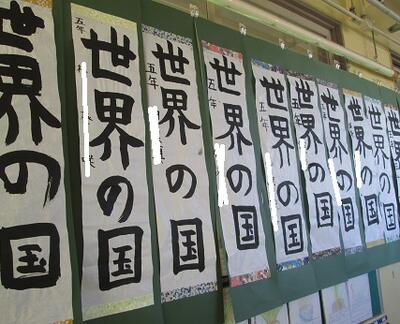 世界の国
世界の国
五年
世界の国
五年
世界の国
五年
世界の国
五年
世界の国
五年
世界の国
世界の国
世界の国
世界の国